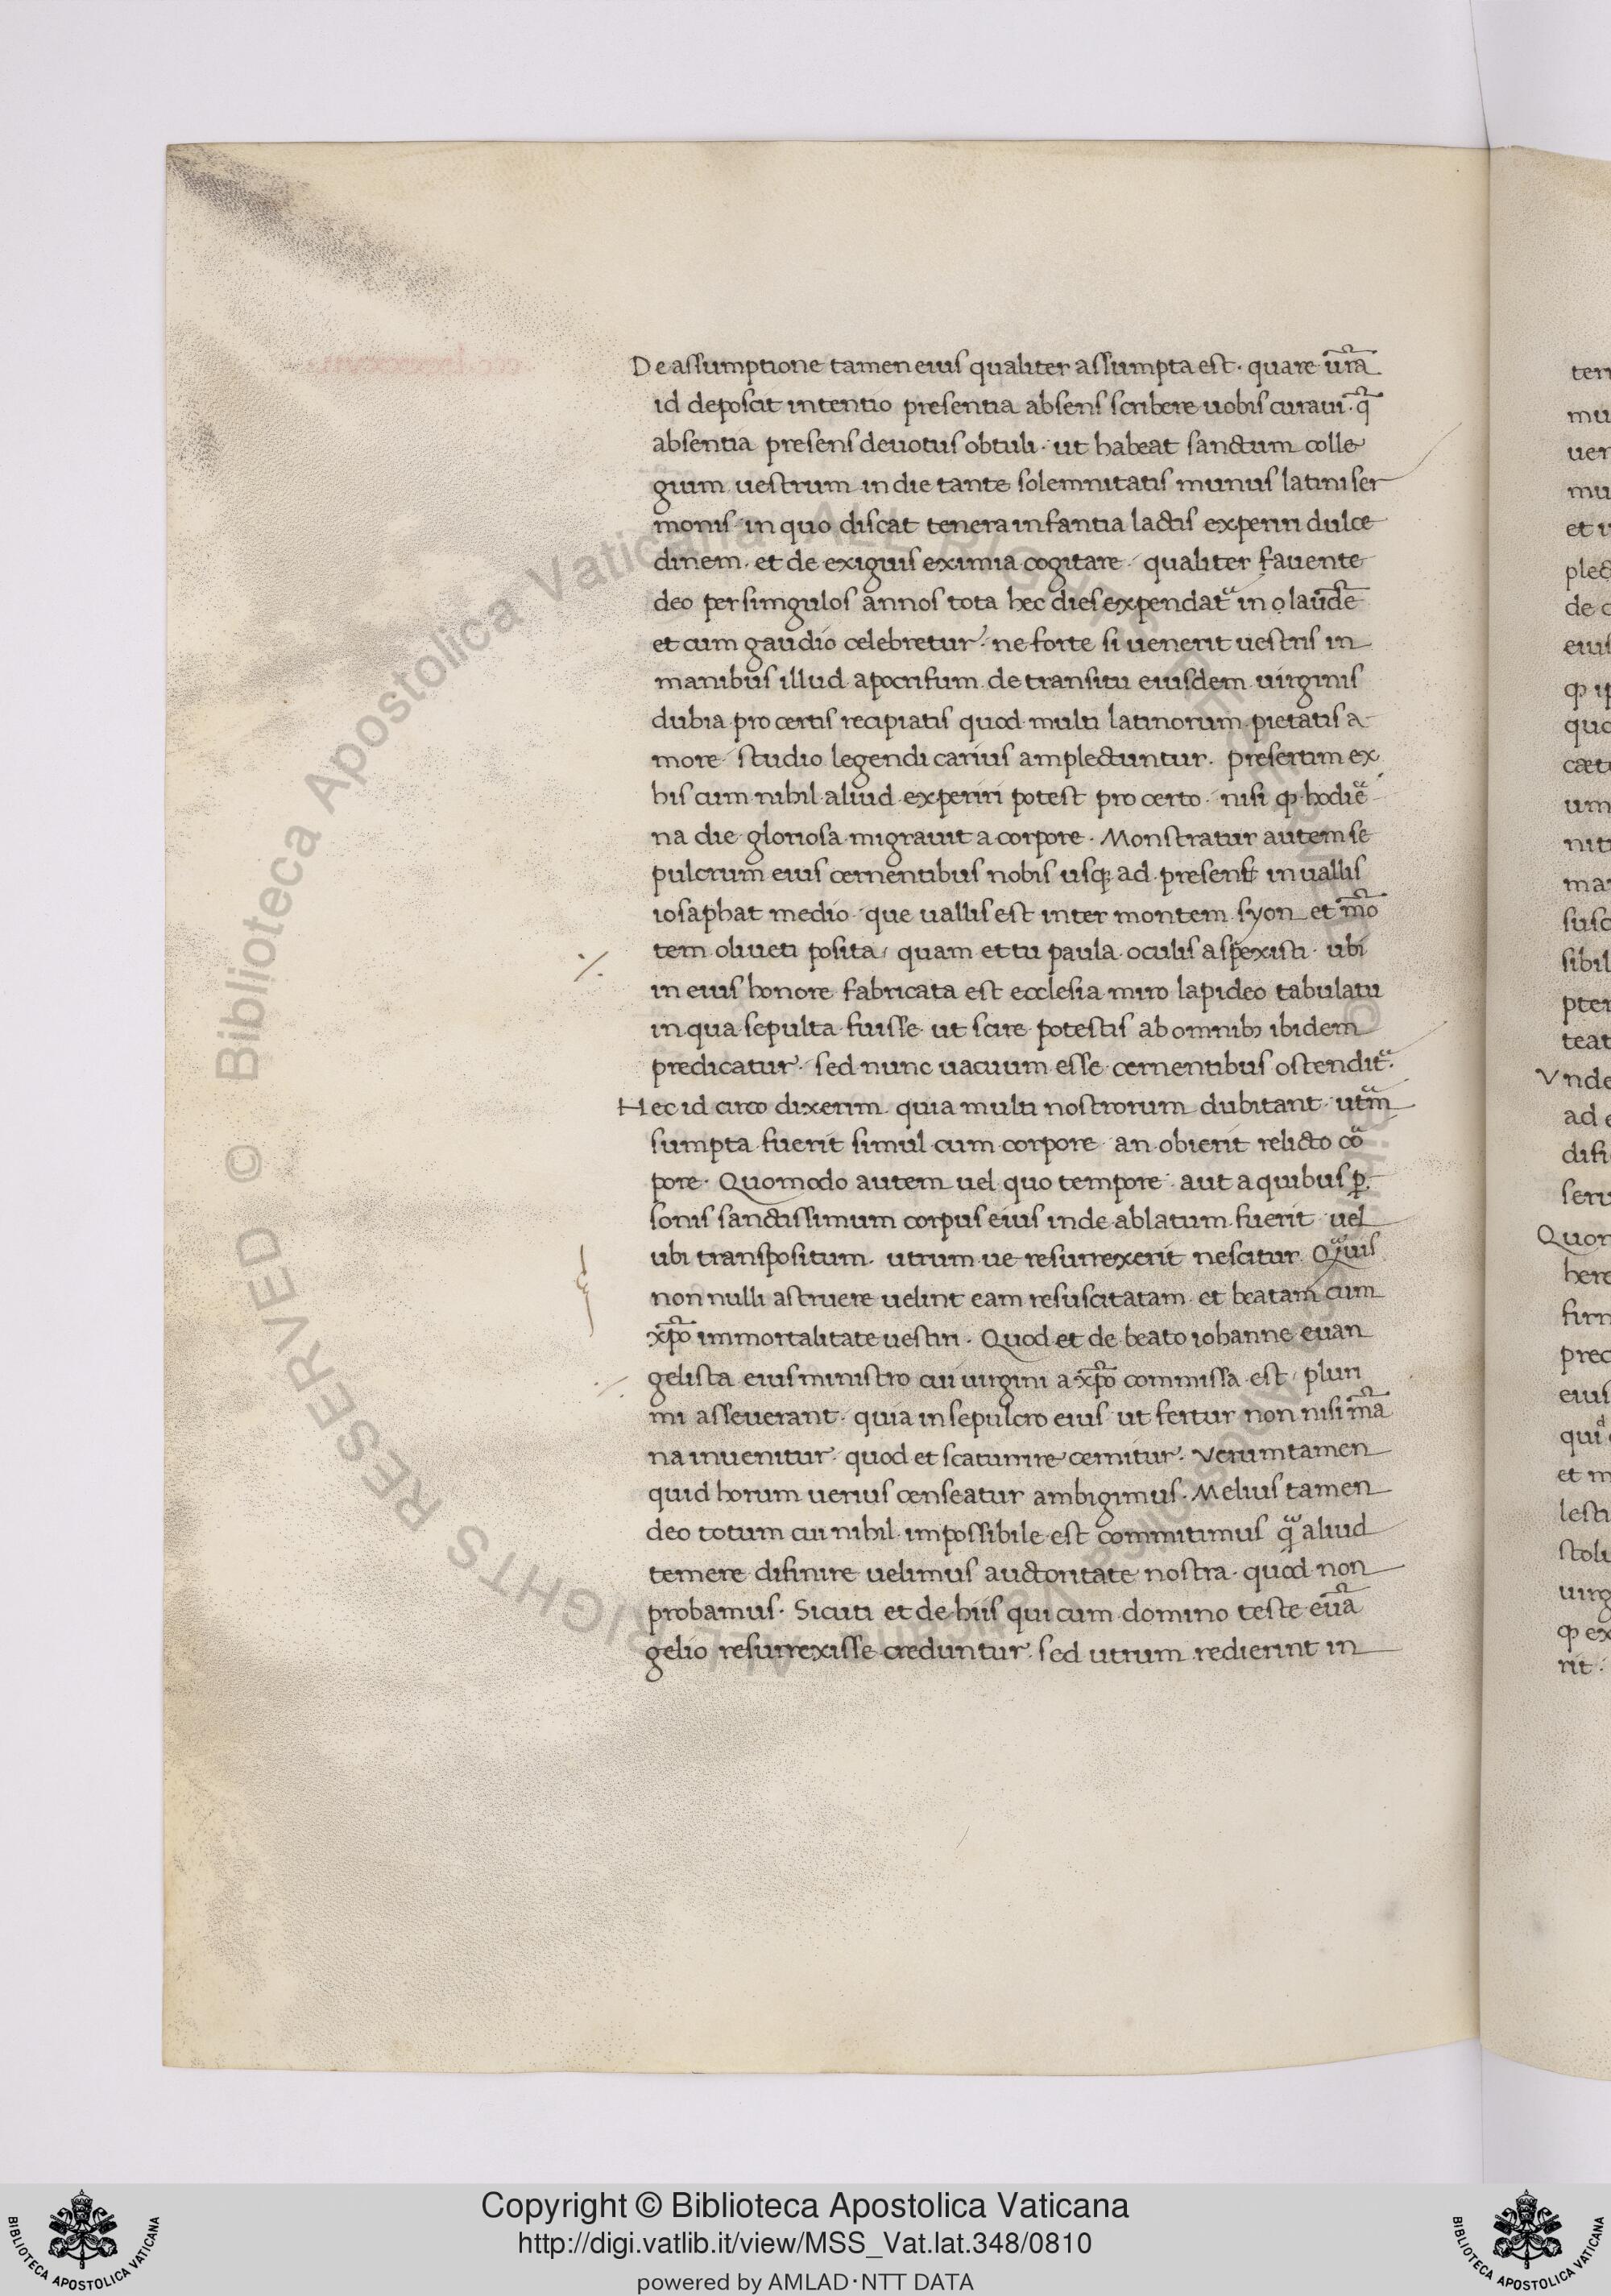 De assumptione tamen eius qualiter assumpta est · quare ur̃a
id deposcit intentio presentia absens scribere uobis curaui · q̃
absentia presens deuotus obtuli · ut habeat sanctum colle
gium uestrum in die tante solemnitatis munus latini ser
monis in quo discat tenera infantia lactis experiri dulce
dinem · et de exiguis eximia cogitare · qualiter fauente
deo per singulos annos tota hec dies expendat᷑ in laude
et cum gaudio celebretur · ne forte si uenerit uestris in
manibus illud apocrifum de transitu eiusdem uirginis
dubia pro certis recipiatis quod multi latinorum pietatis a
more studio legendi carius amplectuntur · presertim ex
his cum nihil aliud experiri potest pro certo · nisi ꝙ hodie
na die gloriosa migrauit a corpore · Monstratur autem se
pulcrum eius cernentibus nobis usq; ad presens in uallis
iosaphat medio · que uallis est inter montem syon et mõ
tem oliueti posita · quam et tu paula oculis aspexisti · ubi
in eius honore fabricata est ecclesia miro lapideo tabulatu
in qua sepulta fuisse ut scire potestis ab omnibꝫ ibidem
predicatur · sed nunc uacuum esse cernentibus ostendit᷑ ·
Hec id circo dixerim quia multi nostrorum dubitant · utrũ
sumpta fuerit simul cum corpore · an obierit relicto cõ
pore · Quomodo autem uel quo tempore · aut a quibus ꝑ
sonis sanctissimum corpus eius inde ablatum fuerit · uel
ubi transpositum · utrum ue resurrexerit nescitur · Q̃uis
non nulli astruere uelint eam resuscitatam · et beatam cum
xp̃o immortalitate uestiri · Quod et de beato iohanne euan
gelista eius ministro cui uirgini a xp̃o commissa est · pluri
mi asseuerant · quia in sepulcro eius ut fertur non nisi mã
na inuenitur · quod et scaturire cernitur · Verum tamen
quid horum uerius censeatur ambigimus · Melius tamen
deo totum cui nihil impossibile est commitimus q̃ aliud
temere difinire uelimus auctoritate nostra · quod non
probamus · Sicuti et de hiis qui cum domino teste euã
gelio resurrexisse creduntur · sed utrum redierint in
Copyright © Biblioteca Apostolica Vaticana
http://digi.vatlib.it/view/MSS_Vat.lat.348/0810
powered by AMLAD·NTT DATA